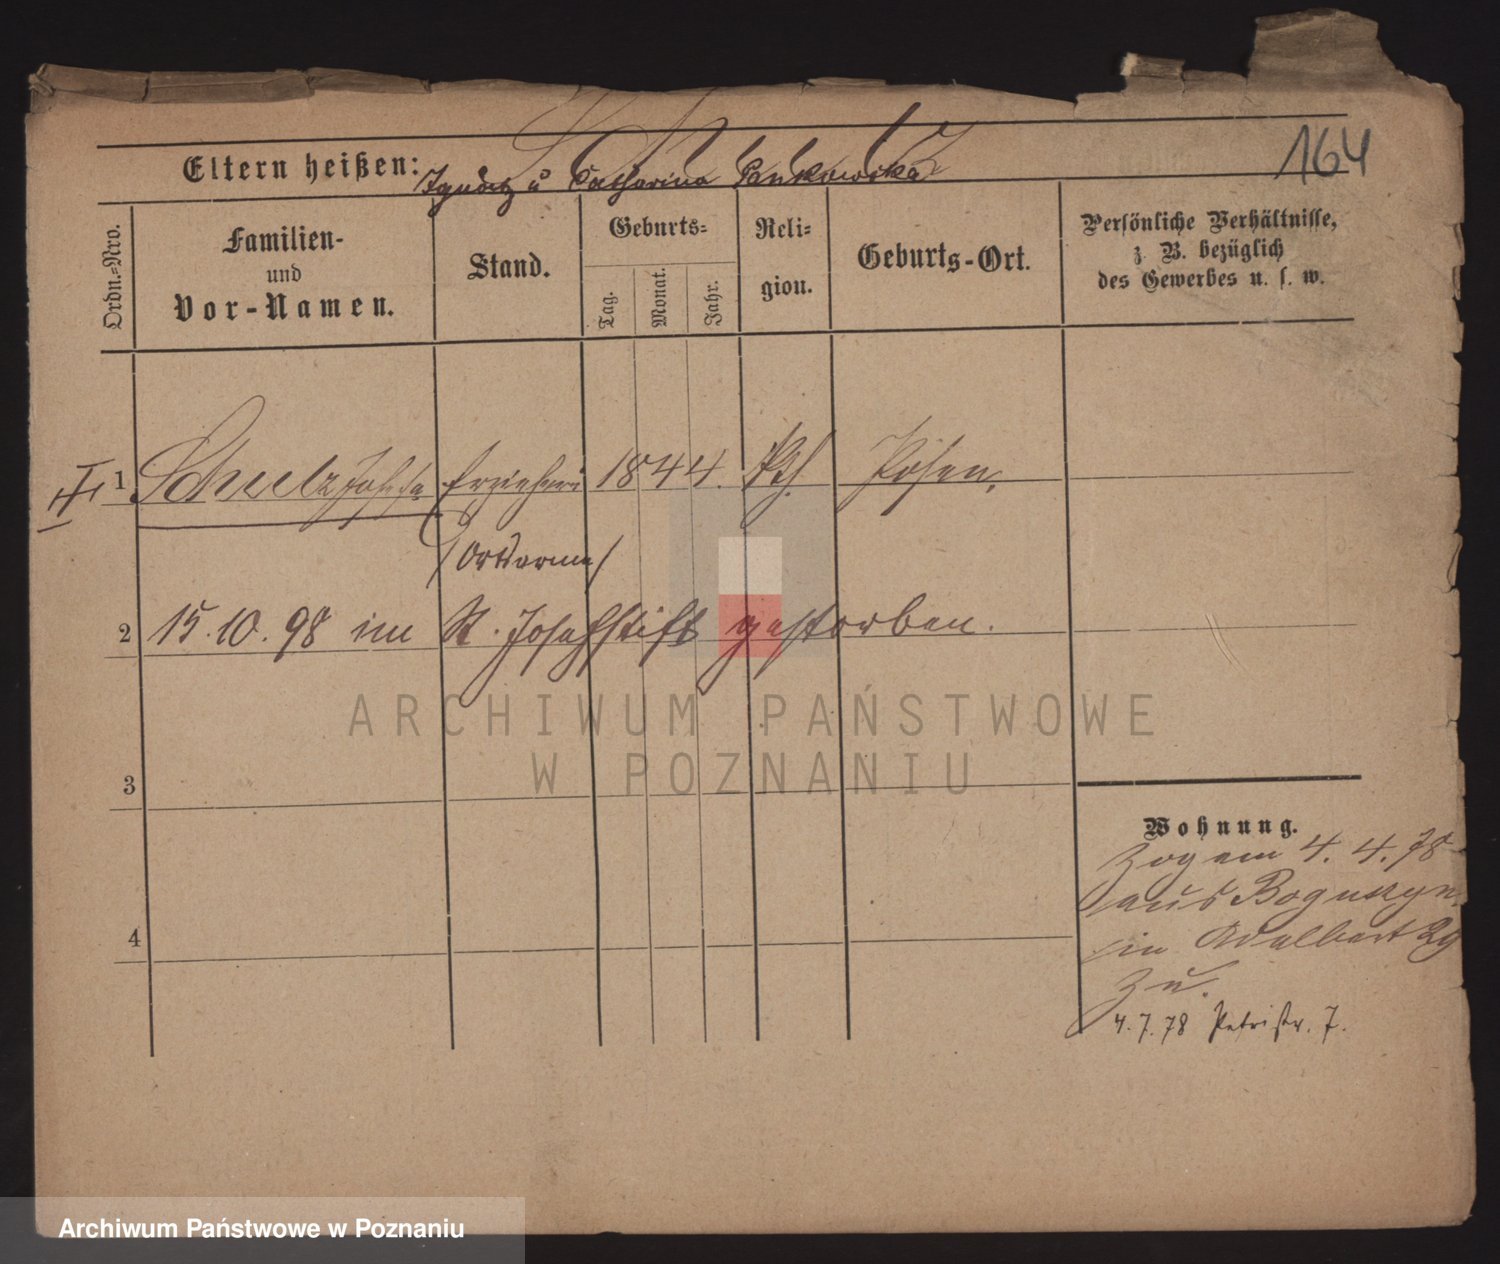 164
Eltern heißen: Ignatz u Catharina Penkowska
Ordn.=Nro.
Familien-
und
Vor-Namen.
Stand.
Geburts=
Tag.
Monat.
Jahr.
Reli-
gion.
Geburts-Ort.
Persönliche Verhältnisse,
z. B. bezüglich
des Gewerbes u. s. w.
1 Schulz Erzieherin 1844. Kth. Posen.
/Ortsarme/
2 15.10.98 im St. Josefstift gestorben.
3
4
Wohnung.
Zog am 4.4.78
aus Boguszyn
in Adalbert 29
zu.
4.7.78 Petristr. 7.
ARCHIWUM PAŃSTWOWE
W POZNANIU
Archiwum Państwowe w Poznaniu